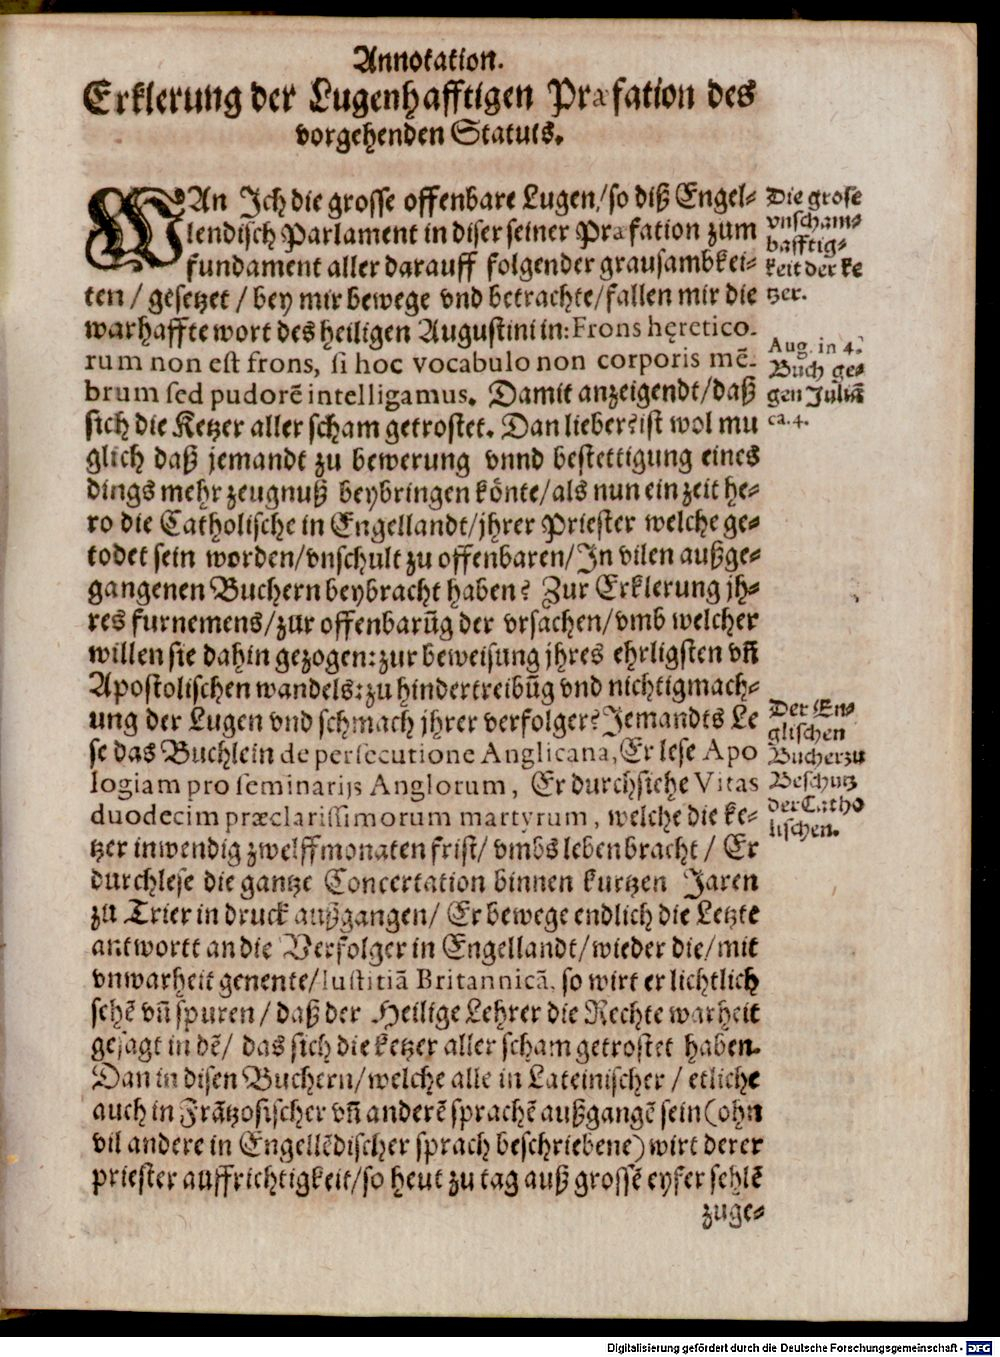 Annotation.
Erklerung der Lugenhafftigen Præfation des
vorgehenden Statuts.
WAn Ich die grosse offenbare Lugen/so diß Engel-
lendisch Parlament in diser seiner Præfation zum
fundament aller darauff folgender grausambkei-
ten / gesetzet / bey mir bewege vnd betrachte/fallen mir die
warhaffte wort des heiligen Augustini in: Frons hęretico-
rum non est frons, si hoc vocabulo non corporis mē-
brum sed pudorē intelligamus. Damit anzeigendt/daß
sich die Ketzer aller scham getrostet. Dan lieber? ist wol mu
glich daß jemandt zu bewerung vnnd bestettigung eines
dings mehr zeugnuß beybringen könte/als nun ein zeit he-
ro die Catholische in Engellandt/jhrer Priester welche ge-
todet sein worden/vnschult zu offenbaren/In vilen außge-
gangenen Buchern beybracht haben? Zur Erklerung jh-
res furnemens/zur offenbarūg der vrsachen/vmb welcher
willen sie dahin gezogen: zur beweisung jhres ehrligsten vñ
Apostolischen wandels: zu hindertreibūg vnd nichtigmach-
ung der Lugen vnd schmach jhrer verfolger? Jemandts Le
se das Buchlein de persecutione Anglicana, Er lese Apo
logiam pro seminarijs Anglorum, Er durchsiehe Vitas
duodecim præclarissimorum martyrum, welche die ke-
tzer inwendig zwelff monaten frist/ vmbs leben bracht / Er
durchlese die gantze Concertation binnen kurtzen Jaren
zu Trier in druck außgangen/ Er bewege endlich die Letzte
antwortt an die Verfolger in Engellandt/wieder die/mit
vnwarheit genente/Iustitiā Britannicā, so wirt er lichtlich
sehē vñ spuren / daß der Heilige Lehrer die Rechte warheit
gesagt in dē/ das sich die ketzer aller scham getrostet haben.
Dan in disen Buchern/welche alle in Lateinischer / etliche
auch in Frātzosischer vñ anderē sprachē außgangē sein (ohn
vil andere in Engellēdischer sprach beschriebene) wirt derer
priester auffrichtigkeit/so heut zu tag auß grossē eyfer sehlē
zuge-
Die grose
vnscham-
hafftig-
keit der ke
tzer.
Aug. in 4.
Buch ge-
gen Juliū
ca. 4.
Der En-
glischen
Bucher zu
Beschutz
der Catho
lischen.
Digitalisierung gefördert durch die Deutsche Forschungsgemeinschaft - DFG